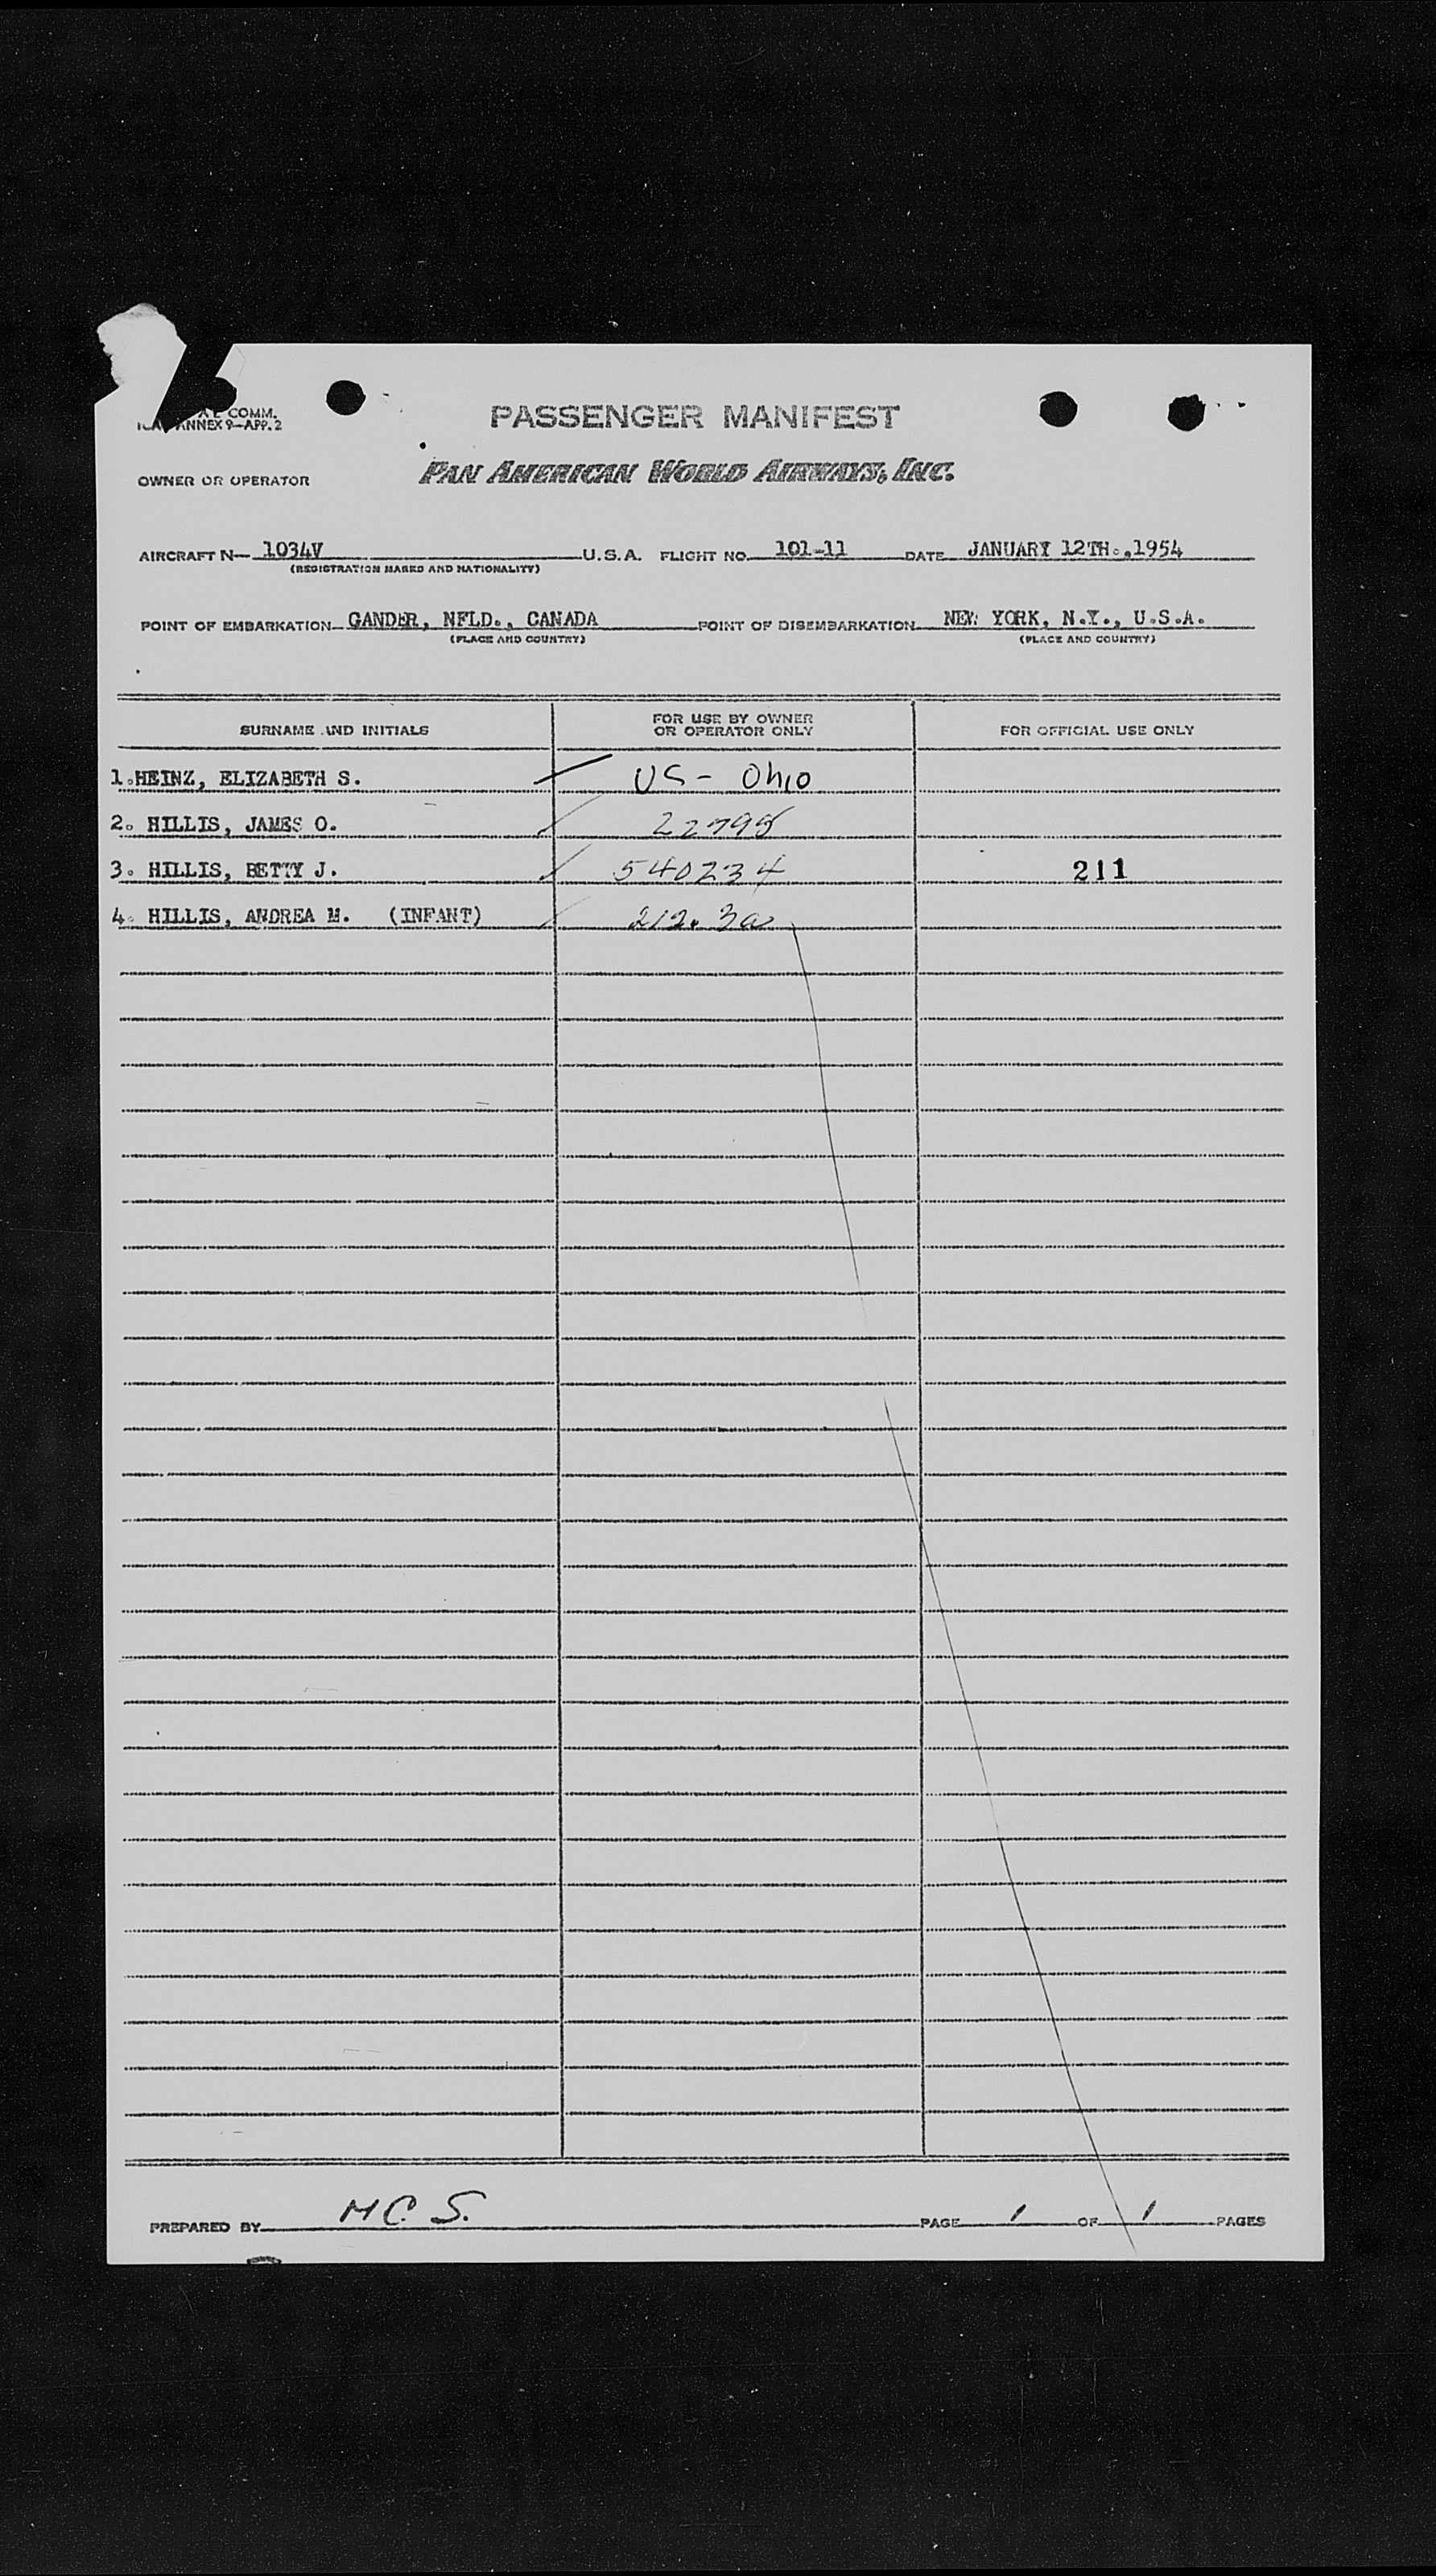 COMM.
ANNEX 9-APP. 2
PASSENGER MANIFEST
OWNER OR OPERATOR PAN AMERICAN WORLD AIRWAYS, INC.
AIRCRAFT N- 1034V U.S.A. FLIGHT NO. 101-11 DATE JANUARY 12TH.,1954
(REGISTRATION MARKS AND NATIONALITY)
POINT OF EMBARKATION GANDER, NFLD., CANADA POINT OF DISEMBARKATION NEW YORK, N.Y., U.S.A.
(PLACE AND COUNTRY) (PLACE AND COUNTRY)
SURNAME AND INITIALS FOR USE BY OWNER OR OPERATOR ONLY FOR OFFICIAL USE ONLY
1.HEINZ, ELIZABETH S. US- Ohio
2. HILLIS, JAMES O.
3. HILLIS, BETTY J. 540234 211
4. HILLIS, ANDREA M. (INFANT) 212.3a
PREPARED BY M.C.S. PAGE 1 OF 1 PAGES